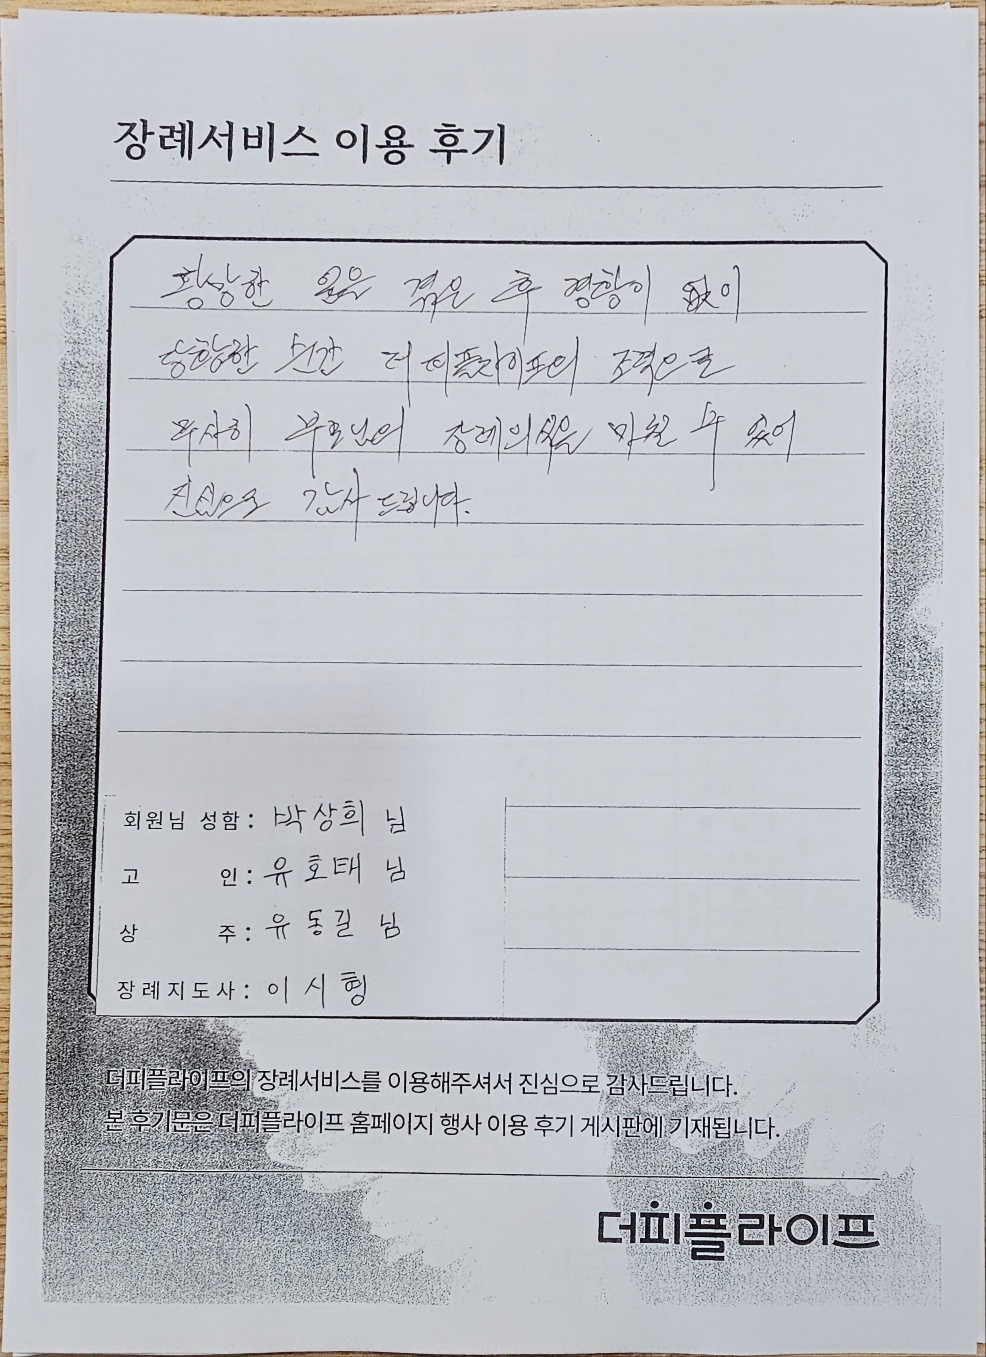 장례서비스 이용 후기
황상한 일을 겪은 후 경황이 없이
당황한 순간 더피플라이프의 조력으로
무사히 부모님의 장례의식을 마칠 수 있어
진심으로 감사 드립니다.
회원님 성함 : 박상희 님
고 인 : 유호태 님
상 주 : 유동길 님
장례지도사 : 이시형
더피플라이프의 장례서비스를 이용해주셔서 진심으로 감사드립니다.
본 후기문은 더피플라이프 홈페이지 행사 이용 후기 게시판에 기재됩니다.
더피플라이프